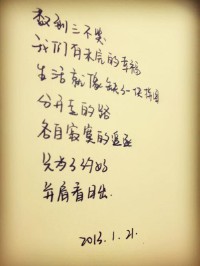 数到三不哭
我们有未完的幸福
生活就像缺了一块拼图
分开走的路
各自寂寞的追逐
只为了约好
并肩看日出.
2013.1.21.